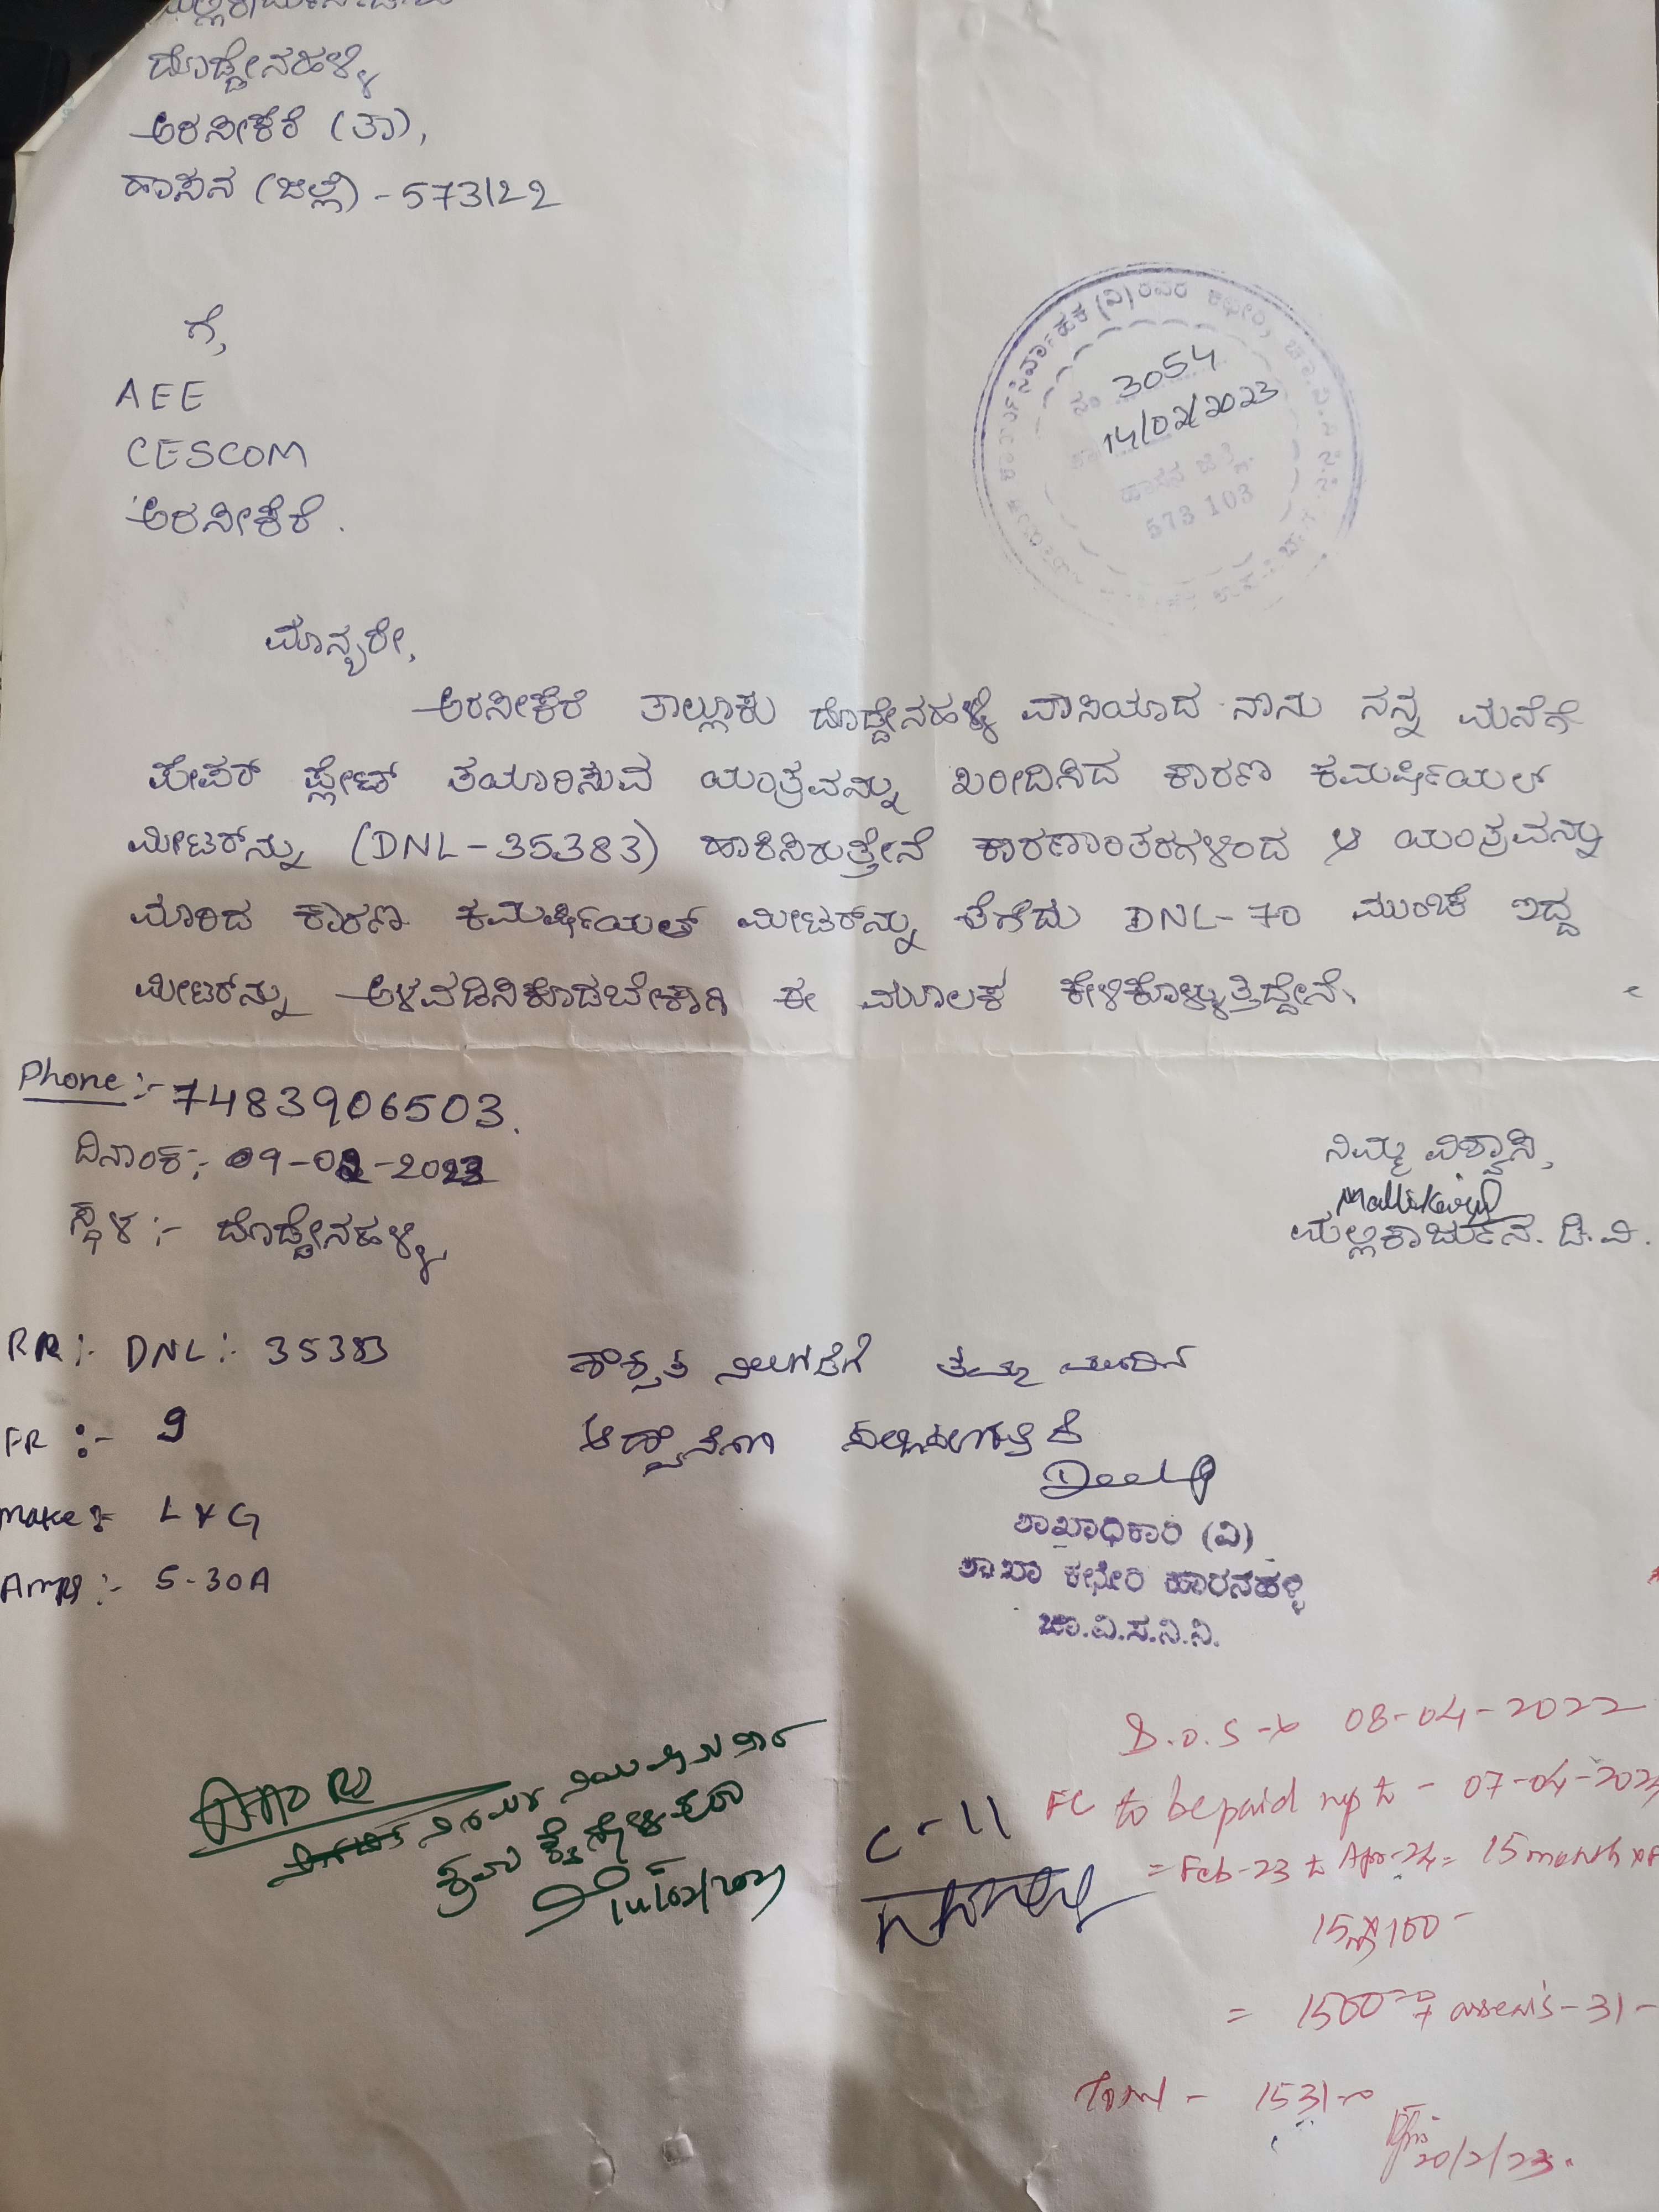 ದೊಡ್ಡೇನಹಳ್ಳಿ
ಅರಸೀಕೆರೆ (ತಾ),
ಹಾಸನ (ಜಿಲ್ಲೆ) - 573122
ಗೆ,
AEE
CESCOM
ಅರಸೀಕೆರೆ.
ನಿರ್ವಾಹಕ (ವಿ) ರವರ ಕಛೇರಿ,
ನಂ 3054
14/02/2023
ಹಾಸನ ಜಿಲ್ಲೆ.
573 103
ಮಾನ್ಯರೇ,
ಅರಸೀಕೆರೆ ತಾಲ್ಲೂಕು ದೊಡ್ಡೇನಹಳ್ಳಿ ವಾಸಿಯಾದ ನಾನು ನನ್ನ ಮನೆಗೆ
ಪೇಪರ್ ಪ್ಲೇಟ್ ತಯಾರಿಸುವ ಯಂತ್ರವನ್ನು ಖರೀದಿಸಿದ ಕಾರಣ ಕಮರ್ಷಿಯಲ್
ಮೀಟರ್‌ನ್ನು (DNL-35383) ಹಾಕಿಸಿರುತ್ತೇನೆ ಕಾರಣಾಂತರಗಳಿಂದ ಆ ಯಂತ್ರವನ್ನು
ಮಾರಿದ ಕಾರಣ ಕಮರ್ಷಿಯಲ್ ಮೀಟರ್‌ನ್ನು ತೆಗೆದು DNL-70 ಮುಂಚೆ ಇದ್ದ
ಮೀಟರ್‌ನ್ನು ಅಳವಡಿಸಿಕೊಡಬೇಕಾಗಿ ಈ ಮೂಲಕ ಕೇಳಿಕೊಳ್ಳುತ್ತಿದ್ದೇನೆ.
Phone :- 7483906503.
ದಿನಾಂಕ :- 09-02-2023
ಸ್ಥಳ :- ದೊಡ್ಡೇನಹಳ್ಳಿ
ನಿಮ್ಮ ವಿಶ್ವಾಸಿ,
ಮಲ್ಲಿಕಾರ್ಜುನ. ಡಿ.ವಿ.
RR :- DNL :- 35383
FR :- 9
Make :- L&G
Amps :- 5-30A
ಶಾಶ್ವತ ನಿಲುಗಡೆಗೆ ತಮ್ಮ ಮುಂದಿನ
ಶಾಖಾಧಿಕಾರಿ (ವಿ)
ಶಾಖಾ ಕಛೇರಿ ಹಾರನಹಳ್ಳಿ
ಚಾ.ವಿ.ಸ.ನಿ.ನಿ.
D.O.S -> 08-04-2022
FC to be paid up to - 07-04-2024
= Feb-23 to Apr-24 = 15 month
C-11
= 1500
Total - 1531
20/2/23.